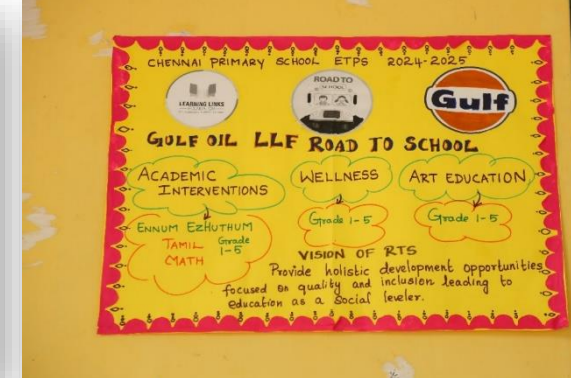 CHENNAI PRIMARY SCHOOL ETPS 2024-2025
LEARNING LINKS
ROAD TO
SCHOOL
Gulf
GULF OIL LLF ROAD TO SCHOOL
ACADEMIC
INTERVENTIONS
WELLNESS
ART EDUCATION
ENNUM EZHUTHUM
TAMIL
MATH
Grade
1-5
Grade 1-5
Grade 1-5
VISION OF RTS
Provide holistic development opportunities
focused on quality and inclusion leading to
education as a social leveler.